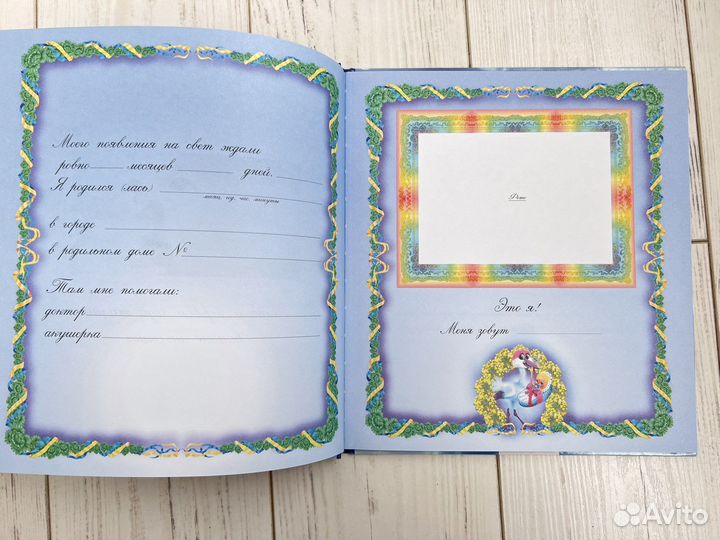 Моего появления на свет ждали
ровно месяцев дней.
Я родился (лась)
число, год, час, минуты
в городе
в родильном доме №
Там мне помогали:
доктор
акушерка
Фото
Это я!
Меня зовут
Avito